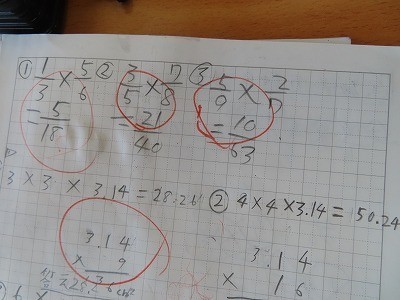 ① 1/3 × 5/6 ② 3/5 × 7/8 ③ 5/9 × 2/7
= 5/18 = 21/40 = 10/63
3 × 3 × 3.14 = 28.26 ② 4 × 4 × 3.14 = 50.24
3.14 3.14
× 9 × 16